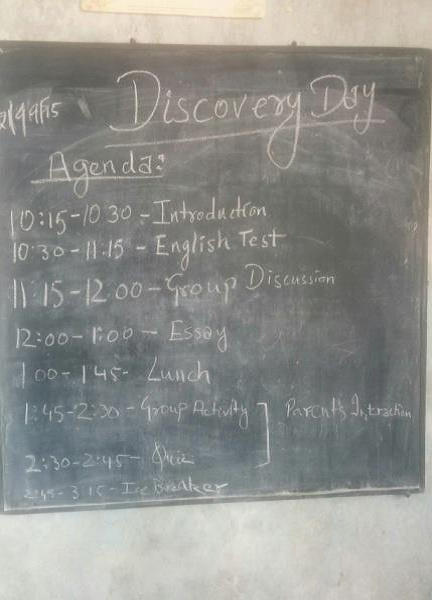 Discovery Day
Agenda:
10:15-10 30 - Introduction
10:30 - 11:15 - English Test
11:15-12 00 - Group Discussion
12:00 - 1:00 - Essay
1 00 - 1 45 - Lunch
1:45-2:30 - Group Activity
Parent's Interaction
2:30-2:45 - Quiz
2:45 - 3:15 - Ice Breaker